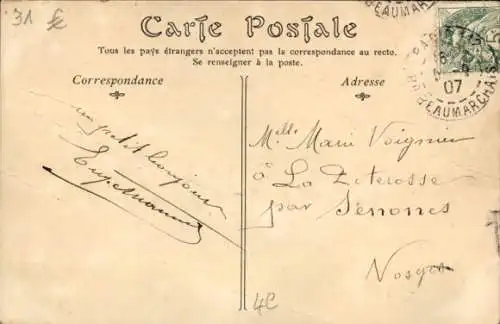 31
Carte Postale
Tous les pays étrangers n'acceptent pas la correspondance au recto.
Se renseigner à la poste.
Correspondance
Adresse
BEAUMARCHAIS
07
BEAUMARCHAIS
un petit bonjour
Melle Marie Voignier
à La
par Senones
Vosges
4€